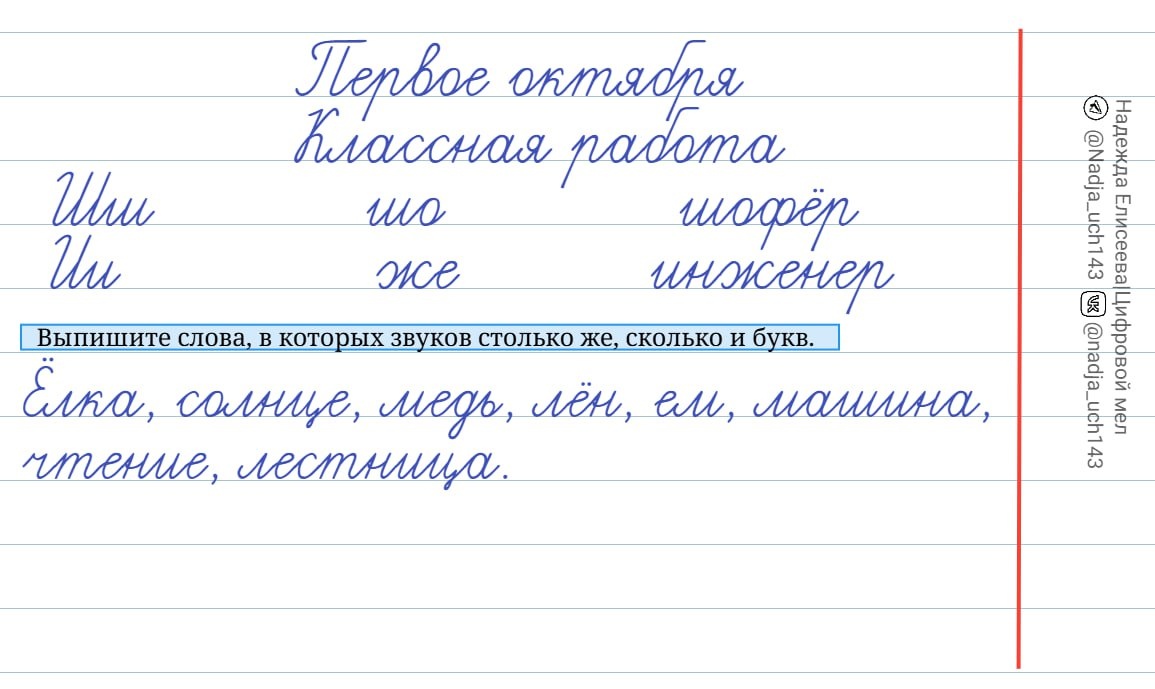 Первое октября
Классная работа
Шш шо шофёр
Ии же инженер
Выпишите слова, в которых звуков столько же, сколько и букв.
Ёлка, солнце, медь, лён, ем, машина,
чтение, лестница.
Надежда Елисеева|Цифровой мел
@Nadja_uch143 @nadja_uch143